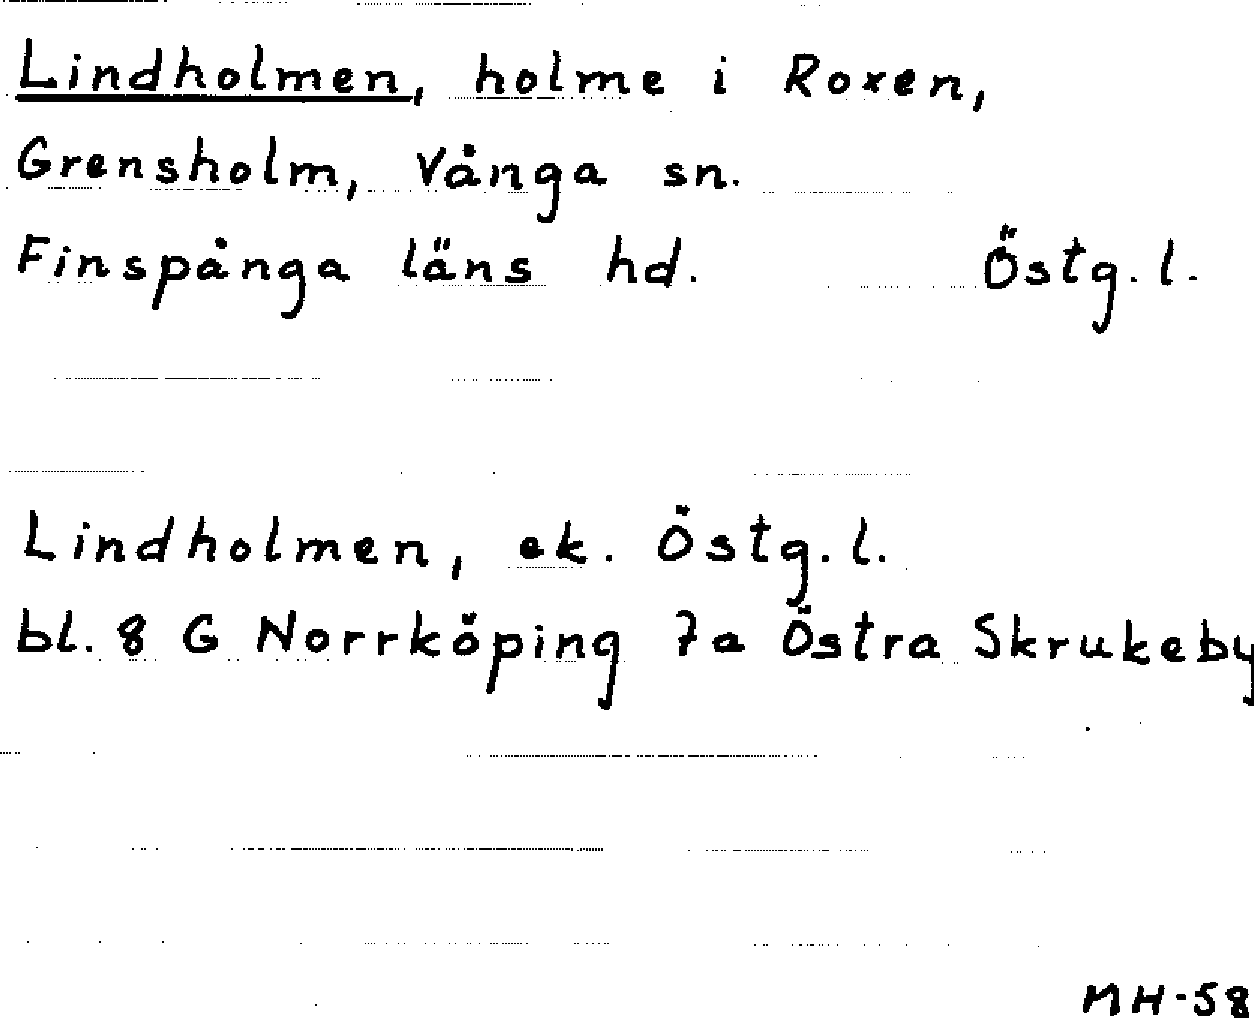 Lindholmen, holme i Roxen,
Grensholm, Vånga sn.
Finspånga läns hd. Östg. l.
Lindholmen, ek. Östg. l.
bl. 8 G Norrköping 7a Östra Skrukeby
MH-58